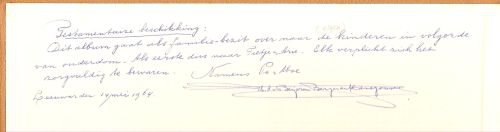 Testamentaire beschikking:
Dit album gaat als familie-bezit over naar de kinderen in volgorde
van ouderdom. Als eerste dus naar Pietje-Ane. Elk verplicht zich het
zorgvuldig te bewaren. Namens Pa + Moe
Leeuwarden 14 mei 1964